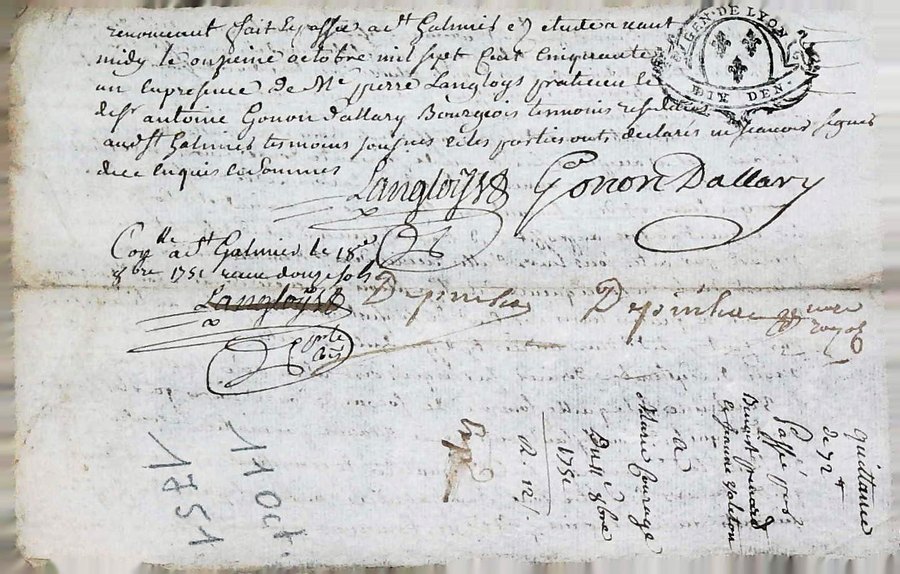 renonceant fait et passé a St Galmies en etude avant
midy le onzieme octobre mil sept cent cinquante
un en presence de Me pierre Langloys praticien et
de Sr antoine Gonon d'allary Bourgois temoins residents
aud. St Galmies temoins soussignes et les parties ont declaré ne scavoir signer
de ce enquis et sommes
Langloys Gonon Dallary
Conlle a St Galmier le 18e
8bre 1751 receu douze sols
Langloys
Depinhac Depinhac no.re
royal
GÉN. DE LYON
DIX DEN.
quittance
de 72 #
Passé par
Benoist
et jeanne
a
Marie Courage
Du 11 8bre
1751
R. 12 s.
11 Oct.
1751